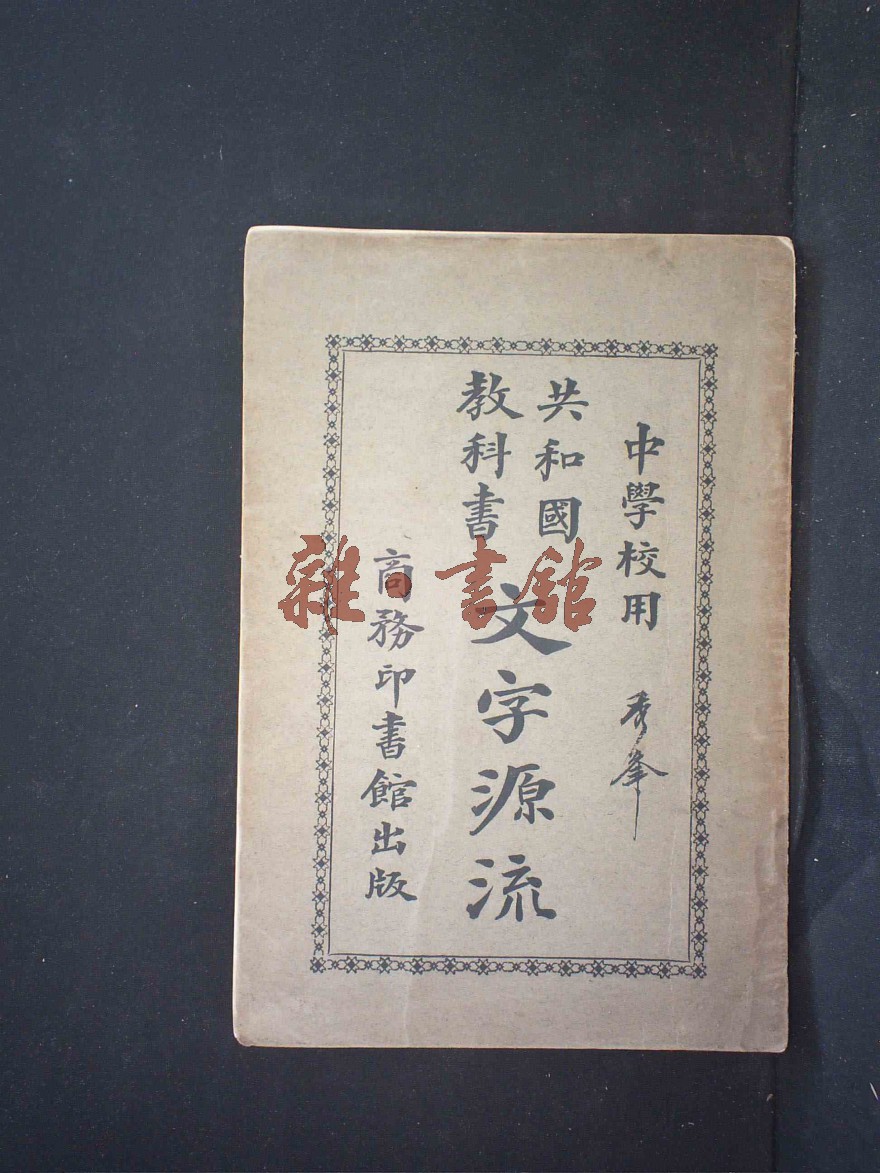 中學校用
秀峯
共和國
教科書
文字源流
商務印書館出版
雜·書館